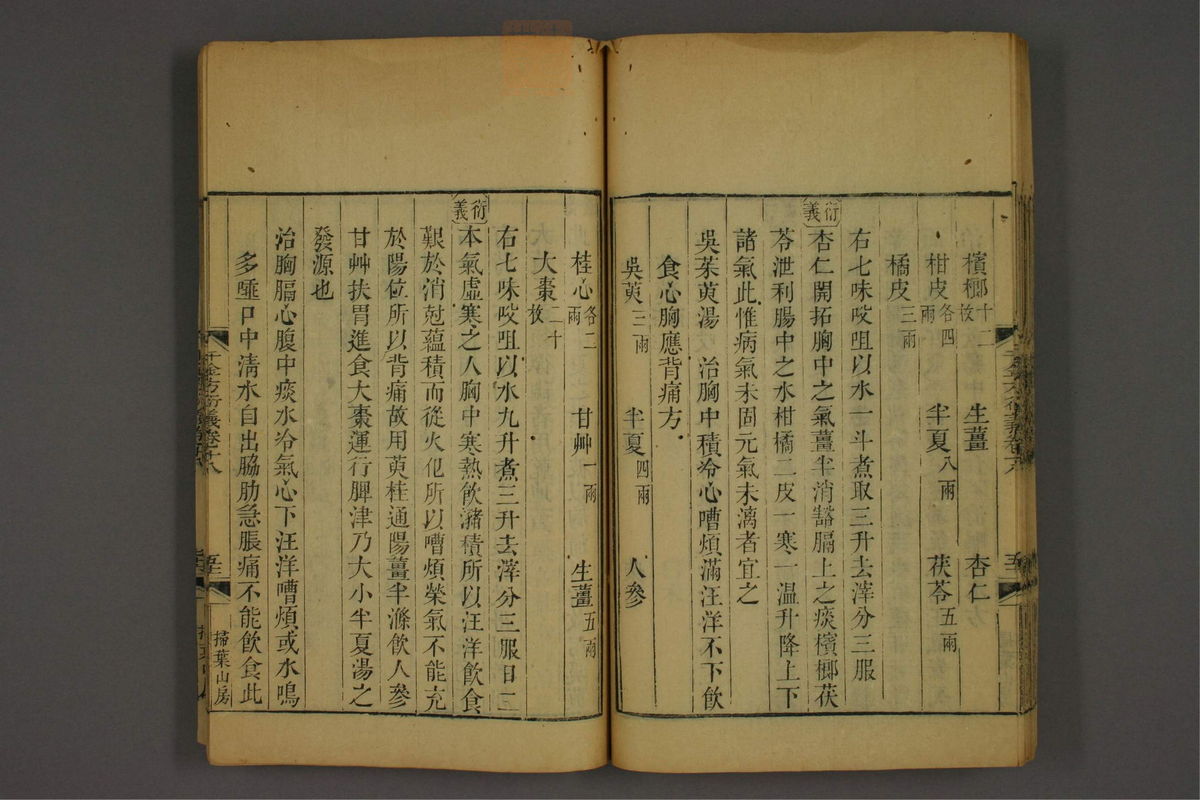 檳榔十二枚 生薑 杏仁
柑皮各四兩 半夏八兩 茯苓五兩
橘皮三兩
右七味㕮咀以水一斗煮取三升去滓分三服
衍義 杏仁開拓胸中之氣薑半消豁膈上之痰檳榔茯
苓泄利腸中之水柑橘二皮一寒一温升降上下
諸氣此惟病氣未固元氣未漓者宜之
吳茱萸湯 治胸中積冷心嘈煩滿汪洋不下飲
食心胸應背痛方
吳萸三兩 半夏四兩 人參
桂心各二兩 甘艸一兩 生薑五兩
大棗二十枚
右七味㕮咀以水九升煮三升去滓分三服日二
衍義 本氣虛寒之人胸中寒熱飲瀦積所以汪洋飲食
艱於消尅蘊積而從火化所以嘈煩榮氣不能充
於陽位所以背痛故用萸桂通陽薑半滌飲人參
甘艸扶胃進食大棗運行脾津乃大小半夏湯之
發源也
治胸膈心腹中痰水冷氣心下汪洋嘈煩或水鳴
多唾口中淸水自出脇肋急脹痛不能飲食此
千金方衍義卷十八
掃葉山房